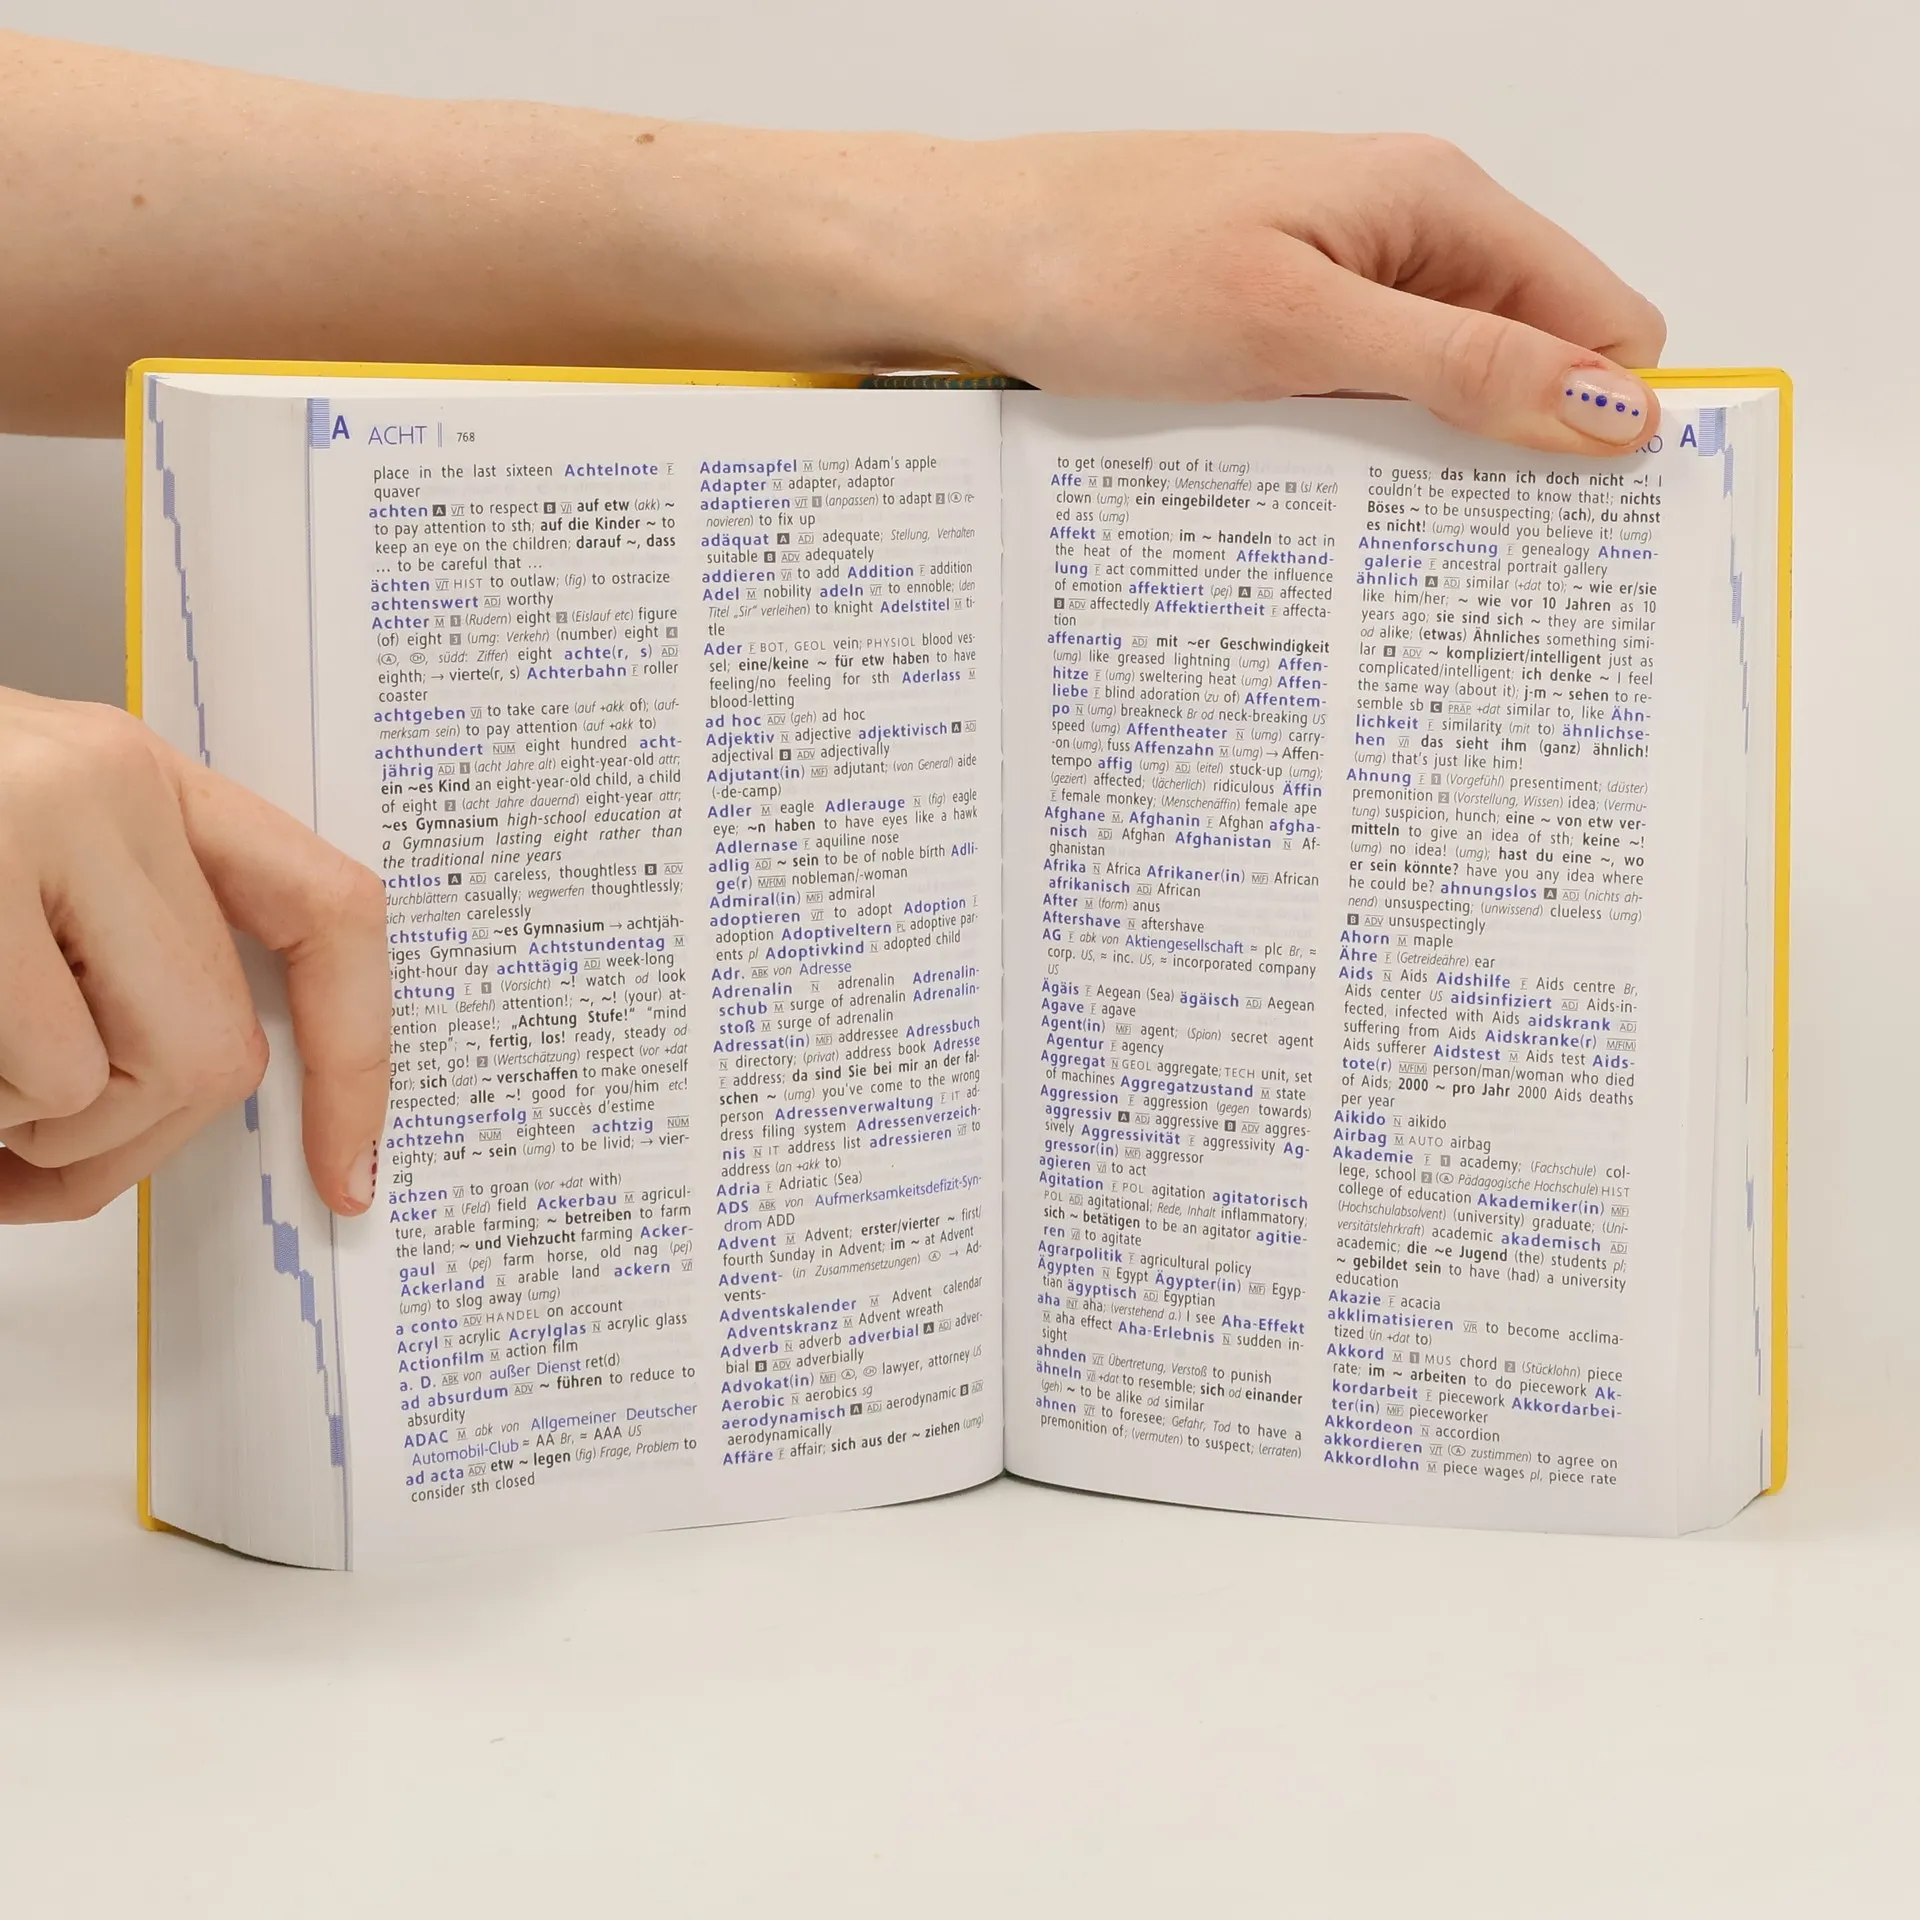 A ACHT | 768
place in the last sixteen Achtelnote F
quaver
achten A V/T to respect B V/I auf etw (akk) ~
to pay attention to sth; auf die Kinder ~ to
keep an eye on the children; darauf ~, dass
... to be careful that ...
ächten V/T HIST to outlaw; (fig) to ostracize
achtenswert ADJ worthy
Achter M 1 (Rudern) eight 2 (Eislauf etc) figure
(of) eight 3 (umg: Verkehr) (number) eight 4
(A, CH, südd: Ziffer) eight achte(r, s) ADJ
eighth; → vierte(r, s) Achterbahn F roller
coaster
achtgeben V/I to take care (auf +akk of); (auf-
merksam sein) to pay attention (auf +akk to)
achthundert NUM eight hundred acht-
jährig ADJ 1 (acht Jahre alt) eight-year-old attr;
ein ~es Kind an eight-year-old child, a child
of eight 2 (acht Jahre dauernd) eight-year attr;
~es Gymnasium high-school education at
a Gymnasium lasting eight rather than
the traditional nine years
chtlos A ADJ careless, thoughtless B ADV
durchblättern casually; wegwerfen thoughtlessly;
sich verhalten carelessly
chtstufig ADJ ~es Gymnasium → achtjäh-
riges Gymnasium Achtstundentag M
eight-hour day achttägig ADJ week-long
chtung F 1 (Vorsicht) ~! watch od look
out!; MIL (Befehl) attention!; ~, ~! (your) at-
ention please!; „Achtung Stufe!“ “mind
the step”; ~, fertig, los! ready, steady od
get set, go! 2 (Wertschätzung) respect (vor +dat
for); sich (dat) ~ verschaffen to make oneself
respected; alle ~! good for you/him etc!
Achtungserfolg M succès d'estime
achtzehn NUM eighteen achtzig NUM
eighty; auf ~ sein (umg) to be livid; → vier-
zig
ächzen V/I to groan (vor +dat with)
Acker M (Feld) field Ackerbau M agricul-
ture, arable farming; ~ betreiben to farm
the land; ~ und Viehzucht farming Acker-
gaul M (pej) farm horse, old nag (pej)
Ackerland N arable land ackern V/I
(umg) to slog away (umg)
a conto ADV HANDEL on account
Acryl N acrylic Acrylglas N acrylic glass
Actionfilm M action film
a. D. ABK von außer Dienst ret(d)
ad absurdum ADV ~ führen to reduce to
absurdity
ADAC M abk von Allgemeiner Deutscher
Automobil-Club ≈ AA Br, ≈ AAA US
ad acta ADV etw ~ legen (fig) Frage, Problem to
consider sth closed
Adamsapfel M (umg) Adam's apple
Adapter M adapter, adaptor
adaptieren V/T 1 (anpassen) to adapt 2 (A re-
novieren) to fix up
adäquat A ADJ adequate; Stellung, Verhalten
suitable B ADV adequately
addieren V/I to add Addition F addition
Adel M nobility adeln V/T to ennoble; (den
Titel „Sir“ verleihen) to knight Adelstitel M ti-
tle
Ader F BOT, GEOL vein; PHYSIOL blood ves-
sel; eine/keine ~ für etw haben to have
feeling/no feeling for sth Aderlass M
blood-letting
ad hoc ADV (geh) ad hoc
Adjektiv N adjective adjektivisch A ADJ
adjectival B ADV adjectivally
Adjutant(in) M(F) adjutant; (von General) aide
(-de-camp)
Adler M eagle Adlerauge N (fig) eagle
eye; ~n haben to have eyes like a hawk
Adlernase F aquiline nose
adlig ADJ ~ sein to be of noble birth Adli-
ge(r) M/F(M) nobleman/-woman
Admiral(in) M(F) admiral
adoptieren V/T to adopt Adoption F
adoption Adoptiveltern PL adoptive par-
ents pl Adoptivkind N adopted child
Adr. ABK von Adresse
Adrenalin N adrenalin Adrenalin-
schub M surge of adrenalin Adrenalin-
stoß M surge of adrenalin
Adressat(in) M(F) addressee Adressbuch
N directory; (privat) address book Adresse
F address; da sind Sie bei mir an der fal-
schen ~ (umg) you've come to the wrong
person Adressenverwaltung F IT ad-
dress filing system Adressenverzeich-
nis N IT address list adressieren V/T to
address (an +akk to)
Adria F Adriatic (Sea)
ADS ABK von Aufmerksamkeitsdefizit-Syn-
drom ADD
Advent M Advent; erster/vierter ~ first/
fourth Sunday in Advent; im ~ at Advent
Advent- (in Zusammensetzungen) A → Ad-
vents-
Adventskalender M Advent calendar
Adventskranz M Advent wreath
Adverb N adverb adverbial A ADJ adver-
bial B ADV adverbially
Advokat(in) M(F) A, CH lawyer, attorney US
Aerobic N aerobics sg
aerodynamisch A ADJ aerodynamic B ADV
aerodynamically
Affäre F affair; sich aus der ~ ziehen (umg)
KO A
to get (oneself) out of it (umg)
Affe M 1 monkey; (Menschenaffe) ape 2 (sl Kerl)
clown (umg); ein eingebildeter ~ a conceit-
ed ass (umg)
Affekt M emotion; im ~ handeln to act in
the heat of the moment Affekthand-
lung F act committed under the influence
of emotion affektiert (pej) A ADJ affected
B ADV affectedly Affektiertheit F affecta-
tion
affenartig ADJ mit ~er Geschwindigkeit
(umg) like greased lightning (umg) Affen-
hitze F (umg) sweltering heat (umg) Affen-
liebe F blind adoration (zu of) Affentem-
po N (umg) breakneck Br od neck-breaking US
speed (umg) Affentheater N (umg) carry-
-on (umg), fuss Affenzahn M (umg) → Affen-
tempo affig (umg) ADJ (eitel) stuck-up (umg);
(geziert) affected; (lächerlich) ridiculous Äffin
F female monkey; (Menschenäffin) female ape
Afghane M, Afghanin F Afghan afgha-
nisch ADJ Afghan Afghanistan N Af-
ghanistan
Afrika N Africa Afrikaner(in) M(F) African
afrikanisch ADJ African
After M (form) anus
Aftershave N aftershave
AG F abk von Aktiengesellschaft ≈ plc Br, ≈
corp. US, ≈ inc. US, ≈ incorporated company
US
Ägäis F Aegean (Sea) ägäisch ADJ Aegean
Agave F agave
Agent(in) M(F) agent; (Spion) secret agent
Agentur F agency
Aggregat N GEOL aggregate; TECH unit, set
of machines Aggregatzustand M state
Aggression F aggression (gegen towards)
aggressiv A ADJ aggressive B ADV aggres-
sively Aggressivität F aggressivity Ag-
gressor(in) M(F) aggressor
agieren V/I to act
Agitation F POL agitation agitatorisch
POL ADJ agitational; Rede, Inhalt inflammatory;
sich ~ betätigen to be an agitator agitie-
ren V/I to agitate
Agrarpolitik F agricultural policy
Ägypten N Egypt Ägypter(in) M(F) Egyp-
tian ägyptisch ADJ Egyptian
aha INT aha; (verstehend a.) I see Aha-Effekt
M aha effect Aha-Erlebnis N sudden in-
sight
ahnden V/T Übertretung, Verstoß to punish
ähneln V/I +dat to resemble; sich od einander
(geh) ~ to be alike od similar
ahnen V/T to foresee; Gefahr, Tod to have a
premonition of; (vermuten) to suspect; (erraten)
to guess; das kann ich doch nicht ~! I
couldn't be expected to know that!; nichts
Böses ~ to be unsuspecting; (ach), du ahnst
es nicht! (umg) would you believe it! (umg)
Ahnenforschung F genealogy Ahnen-
galerie F ancestral portrait gallery
ähnlich A ADJ similar (+dat to); ~ wie er/sie
like him/her; ~ wie vor 10 Jahren as 10
years ago; sie sind sich ~ they are similar
od alike; (etwas) Ähnliches something simi-
lar B ADV ~ kompliziert/intelligent just as
complicated/intelligent; ich denke ~ I feel
the same way (about it); j-m ~ sehen to re-
semble sb C PRÄP +dat similar to, like Ähn-
lichkeit F similarity (mit to) ähnlichse-
hen V/I das sieht ihm (ganz) ähnlich!
(umg) that's just like him!
Ahnung F 1 (Vorgefühl) presentiment; (düster)
premonition 2 (Vorstellung, Wissen) idea; (Vermu-
tung) suspicion, hunch; eine ~ von etw ver-
mitteln to give an idea of sth; keine ~!
(umg) no idea! (umg); hast du eine ~, wo
er sein könnte? have you any idea where
he could be? ahnungslos A ADJ (nichts ah-
nend) unsuspecting; (unwissend) clueless (umg)
B ADV unsuspectingly
Ahorn M maple
Ähre F (Getreideähre) ear
Aids N Aids Aidshilfe F Aids centre Br,
Aids center US aidsinfiziert ADJ Aids-in-
fected, infected with Aids aidskrank ADJ
suffering from Aids Aidskranke(r) M/F(M)
Aids sufferer Aidstest M Aids test Aids-
tote(r) M/F(M) person/man/woman who died
of Aids; 2000 ~ pro Jahr 2000 Aids deaths
per year
Aikido N aikido
Airbag M AUTO airbag
Akademie F 1 academy; (Fachschule) col-
lege, school 2 (A Pädagogische Hochschule) HIST
college of education Akademiker(in) M(F)
(Hochschulabsolvent) (university) graduate; (Uni-
versitätslehrkraft) academic akademisch ADJ
academic; die ~e Jugend (the) students pl;
~ gebildet sein to have (had) a university
education
Akazie F acacia
akklimatisieren V/R to become acclima-
tized (in +dat to)
Akkord M 1 MUS chord 2 (Stücklohn) piece
rate; im ~ arbeiten to do piecework Ak-
kordarbeit F piecework Akkordarbei-
ter(in) M(F) pieceworker
Akkordeon N accordion
akkordieren V/T (A zustimmen) to agree on
Akkordlohn M piece wages pl, piece rate